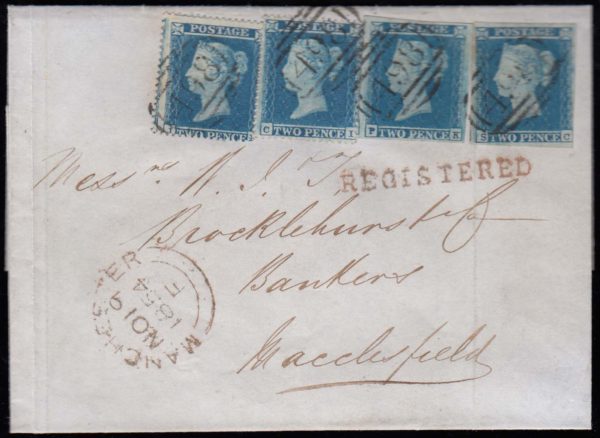 POSTAGE POSTAGE POSTAGE POSTAGE
498 498 498 498
TWO PENCE C TWO PENCE I P TWO PENCE K S TWO PENCE C
REGISTERED
Messrs W. J. T.
Brocklehurst & Co
Bankers
Macclesfield
MANCHESTER
NO 19
1854